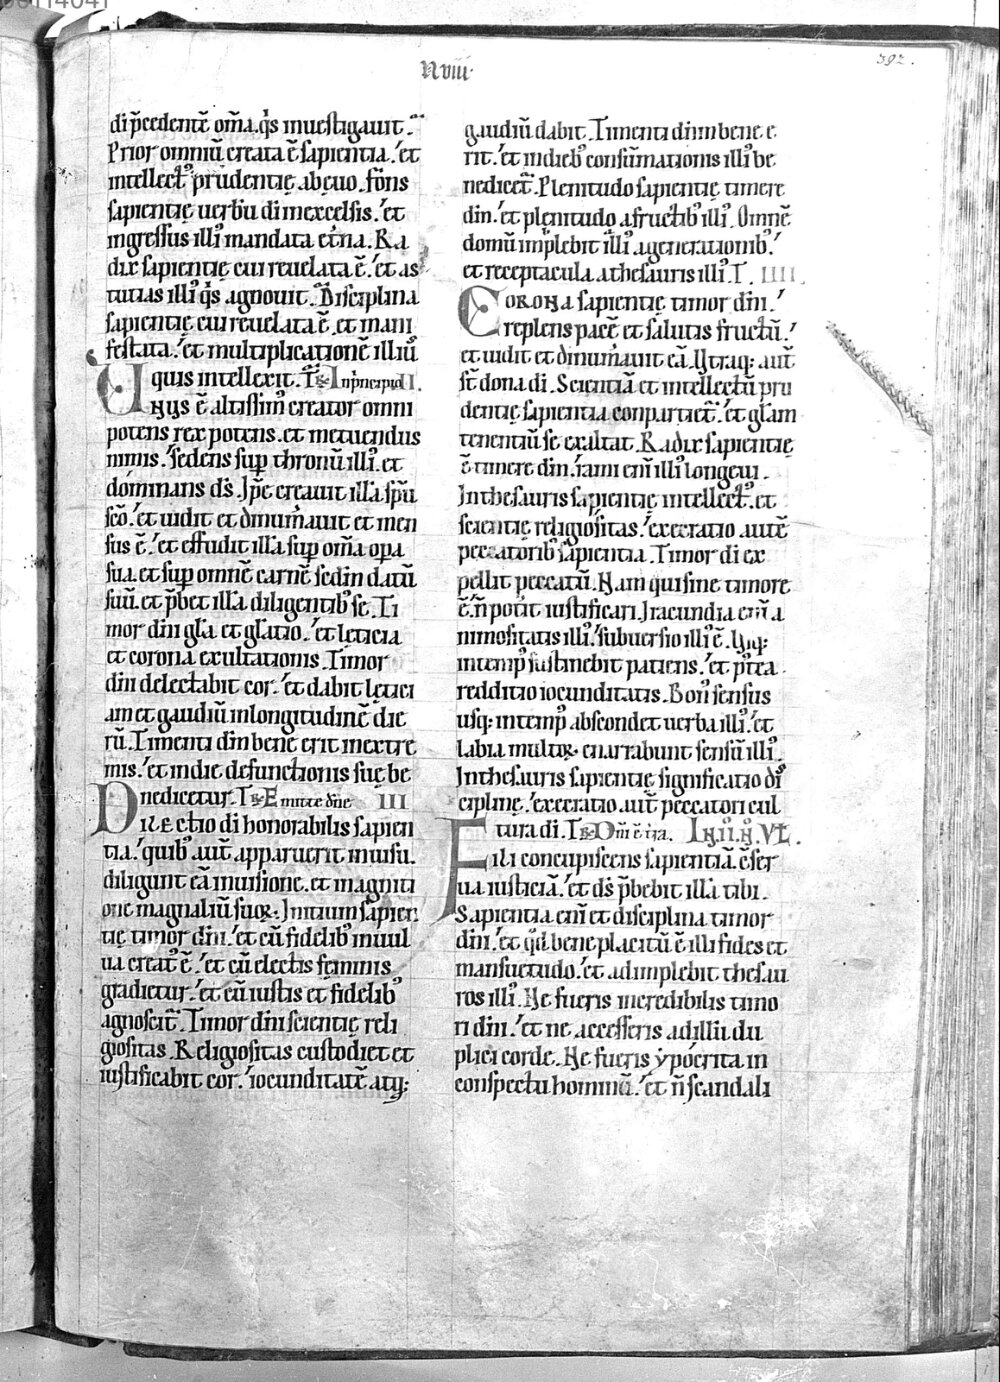 N. viii.
392.
di p̄cedentē om̄a. q̄s inuestigauit.
Prior omniū creata ē sapientia. et
intellectꝰ prudentię ab ęuo. fōns
sapientię uerbū di in excelsis. et
ingressus illiꝰ mandata et̄na. Ra
dix sapientię cui reuelata ē. et as
tutias illiꝰ q̄s agnouit. Disciplina
sapientię cui reuelata ē. et mani
festata. et multiplicationē illiuꝰ
quis intellexit. In principio II.
Unus ē altissimꝰ creator omni
potens rex potens. et metuendus
nimis. sedens sup̄ thronū illiꝰ. et
dominans ds̄. Ip̄e creauit illā sp̄u
sc̄o. et uidit et dinum̄auit et men
sus ē. et effudit illā sup̄ om̄a opa
sua. et sup̄ omnē carnē sedm̄ datū
suū. et p̄bet illā diligentibꝰ se. Ti
mor dn̄i gl̄a et gl̄atio. et leticia
et corona exultationis. Timor
dn̄i delectabit cor. et dabit lętici
am et gaudiū in longitudinē die
rū. Timenti dm̄ bene erit in extre
mis. et in die defunctionis suę be
nedicetur. Emitte dn̄e III
Dilectio di honorabilis sapien
tia. quibꝰ aut̄ apparuerit in uisu.
diligunt eā in uisione. et magniti
one magnaliū suoꝝ. Initium sapien
tię timor dn̄i. et cū fidelibꝰ in uul
ua creatꝰ ē. et cū electis feminis
gradietur. et cū iustis et fidelibꝰ
agnoscit̄. Timor dn̄i scientię reli
giositas. Religiositas custodiet et
iustificabit cor. iocunditatē atq;
gaudiū dabit. Timenti dn̄m bene e
rit. et in diebꝰ consūmationis illiꝰ be
nedicet̄. Plenitudo sapientię timere
dm̄. et plenitudo a fructibꝰ illiꝰ. Omnē
domū implebit illiꝰ a generationibꝰ.
et receptacula a thesauris illiꝰ. T. IIII.
Corona sapientię timor dn̄i.
replens pacē et salutis fructū.
et uidit et dinum̄auit eā. Utraq; aut̄
st̄ dona di. Scientiā et intellectū pru
dentię sapientia conpartiet̄. et gl̄am
tenentiū se exaltat. Radix sapientię
ē timere dm̄. rami eni illiꝰ longeui.
In thesauris sapientię intellectꝰ. et
scientię religiositas. execratio autē
peccatoribꝰ sapientia. Timor di ex
pellit peccatū. Nam qui sine timore
ē. n̄ potit iustificari. Iracundia eni a
nimositatis illiꝰ. subuersio illiꝰ ē. Usq;
in tempꝰ sustinebit patiens. et p̄tea
redditio iocunditatis. Bonꝰ sensus
usq; in tempꝰ abscondet uerba illiꝰ. et
labia multoꝝ enarrabunt sensū illiꝰ.
In thesauris sapientię significatio dis
ciplinę. execratio aut̄ peccatori cul
tura di. Dn̄i ē t̄ra.
Fili concupiscens sapientiā. cser
ua iusticiā. et ds̄ p̄bebit illā tibi.
Sapientia eni et disciplina timor
dn̄i. et qd̄ bene placitū ē illi fides et
mansuetudo. et adimplebit thesau
ros illiꝰ. Ne fueris incredibilis timo
ri dn̄i. et ne accesseris ad illū du
plici corde. Ne fueris ypócrita in
conspectu hominū. et n̄ scandali